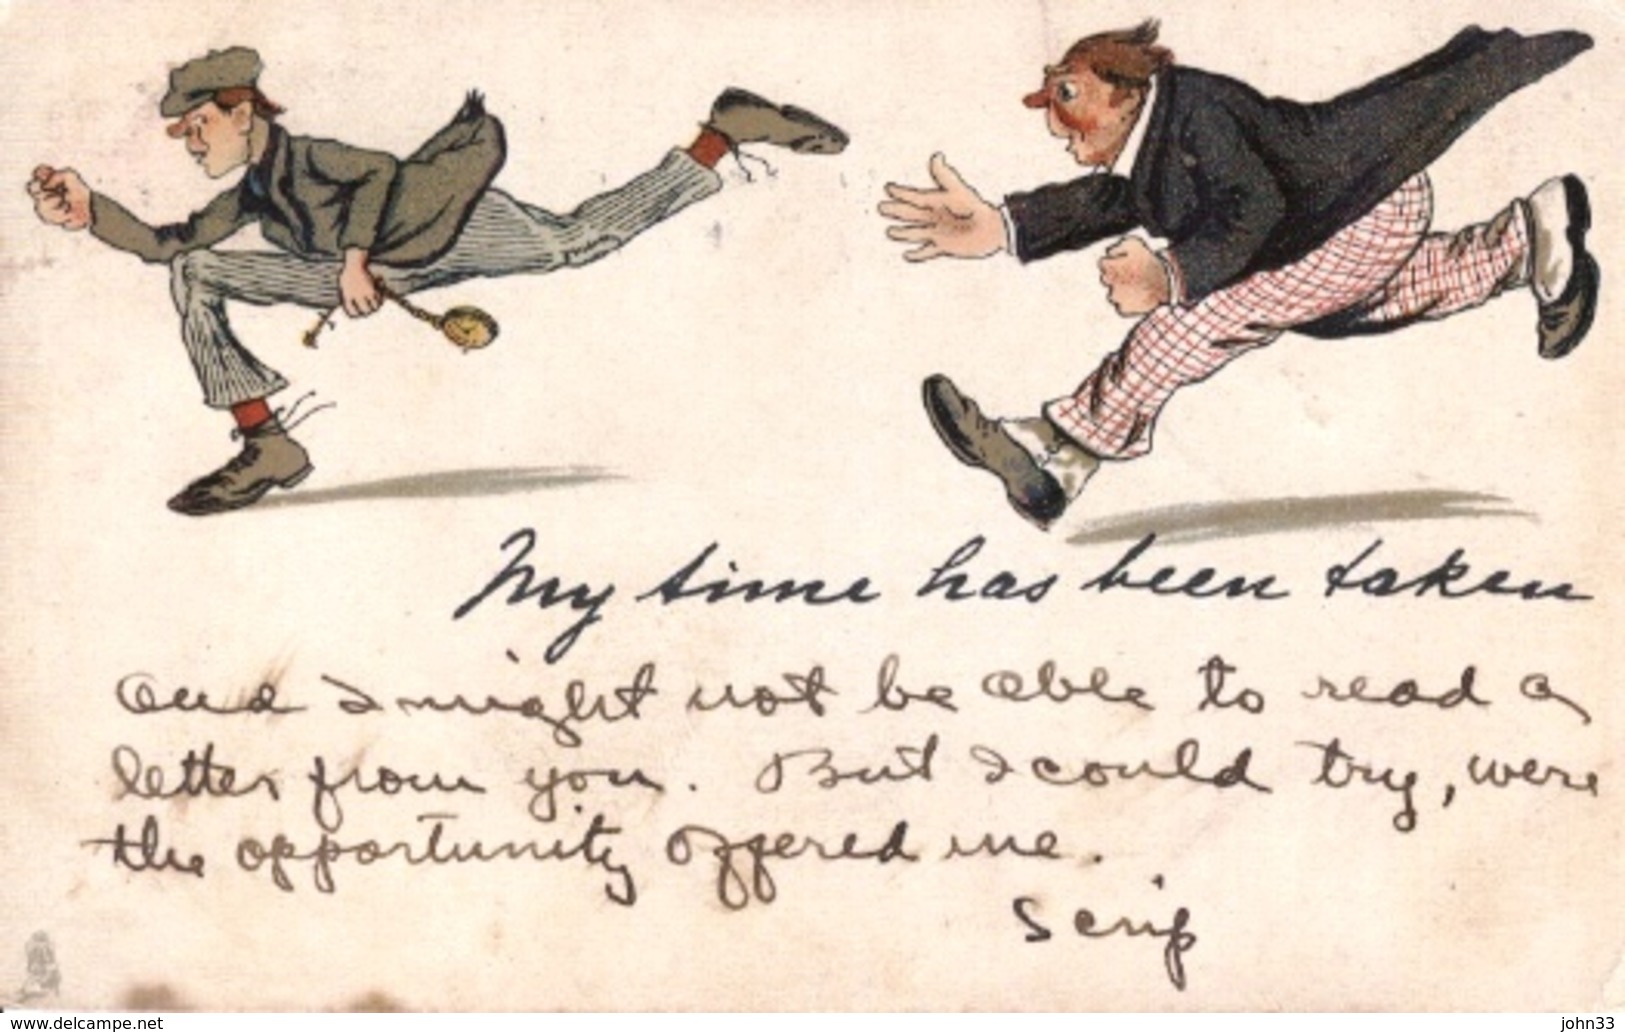 My time has been taken
and I might not be able to read a
letter from you. But I could try, were
the opportunity offered me.
Scrip
www.delcampe.net
john33